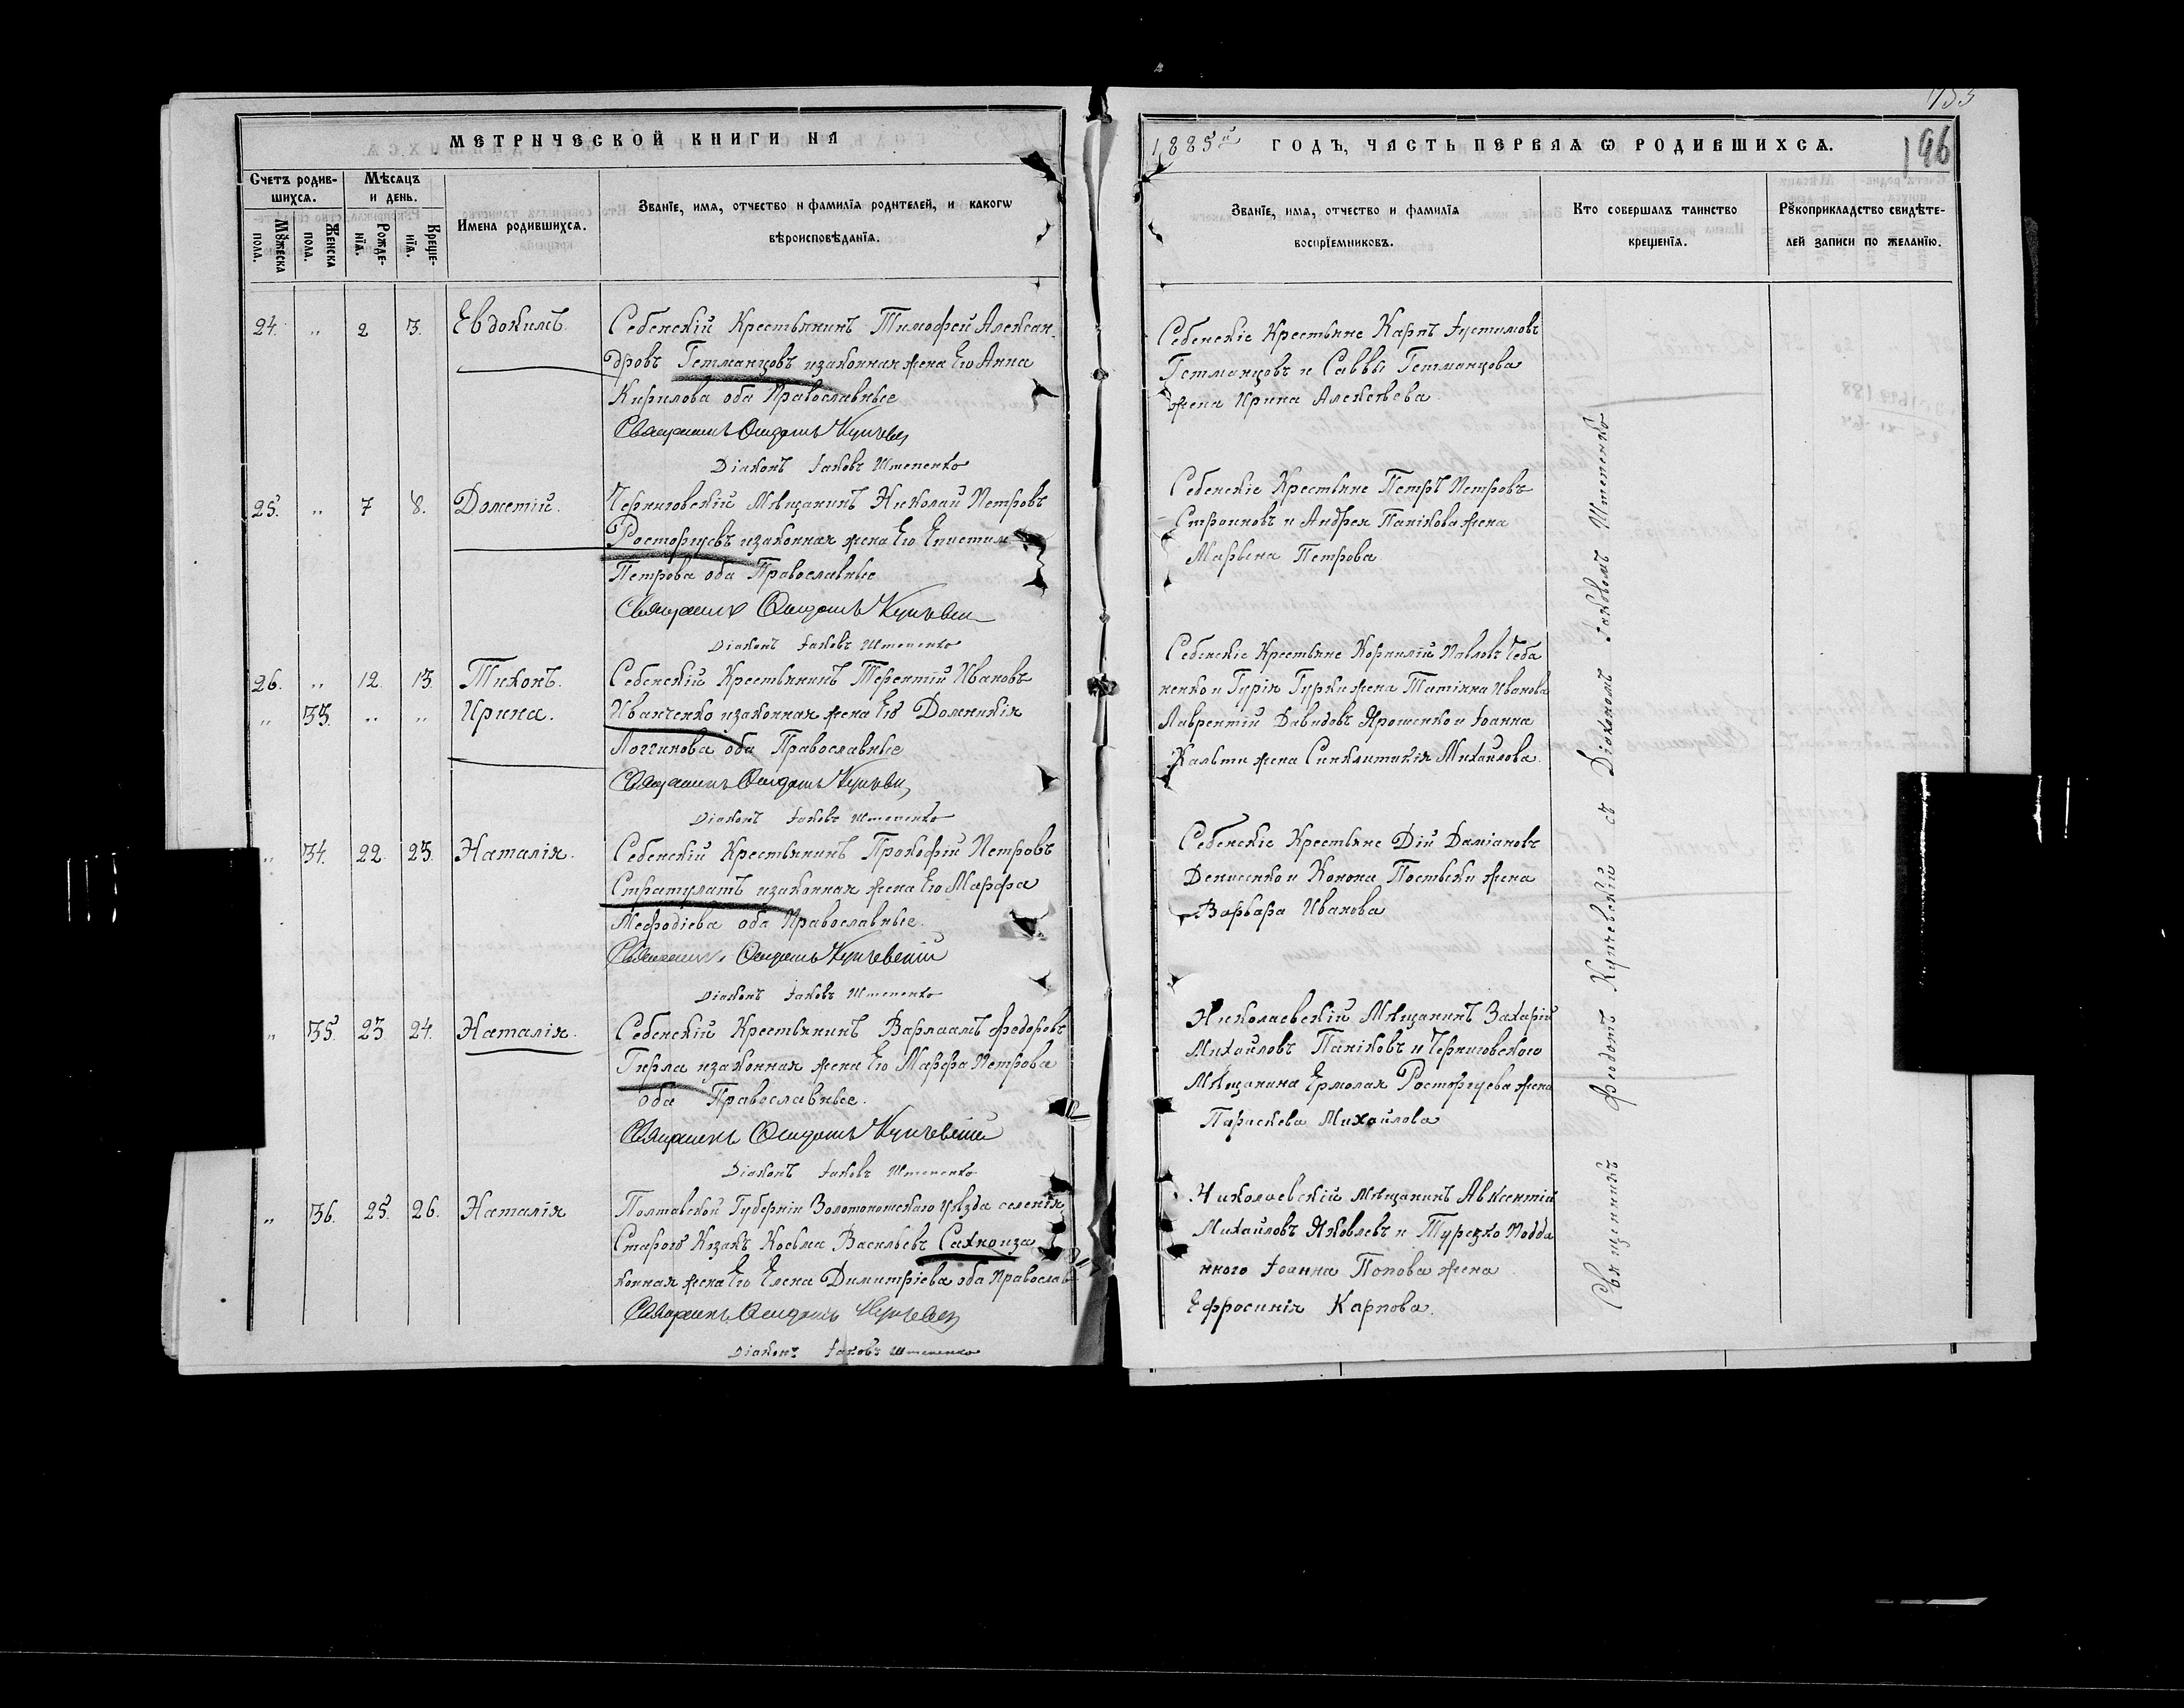 МЕТРИЧЕСКОЙ КНИГИ НА
Счетъ родив-
шихсѧ.
Мѣсѧцъ
и день.
Мꙋжеска
пола.
Женска
пола.
Рожде-
нїѧ.
Креще-
нїѧ.
Имена родившихсѧ.
Званїе, имѧ, отчество и фамилїѧ родителей, и какогѡ
вѣроисповѣданїѧ.
24. „ 2 3. Евдокимъ. Себенскій Крестьянинъ Тимофей Алексан-
дровъ Гетманцовъ изаконная жена Его Анна
Кирилова оба Православные
Священникъ Ѳеодотъ
Діаконъ Іаковъ Штепенко
25. „ 7 8. Дометій. Черниговскій Мѣщанинъ Николай Петровъ
Расторгуевъ изаконная жена Его Епистим
Петрова оба Православные
Священникъ Ѳеодотъ
Діаконъ Іаковъ Штепенко
26. „ 12. 13. Тихонъ. Себенскій Крестьянинъ Терентій Ивановъ
„ 33. „ „ Ирина. Иванченко изаконная жена Его Домникія
Логгинова оба Православные
Священникъ Ѳеодотъ
Діаконъ Іаковъ Штепенко
„ 34. 22. 23. Наталія. Себенскій Крестьянинъ Прокофій Петровъ
Стратулатъ изаконная жена Его Марфа
Мефодіева оба Православные.
Священникъ Ѳеодотъ Купчевскій
Діаконъ Іаковъ Штепенко
„ 35. 23 24. Наталія. Себенскій Крестьянинъ Варлаамъ Федоровъ
Гирла изаконная жена Его Марфа Петрова
оба Православные.
Священникъ Ѳеодотъ Купчевскій
Діаконъ Іаковъ Штепенко
„ 36. 25. 26. Наталія Полтавской Губерніи Золотоношскаго уѣзда селенія
Козакъ Косьма Васильевъ Сахно иза
конная жена Его Елена Димитріева оба Православ
Священникъ Ѳеодотъ
Діаконъ Іаковъ Штепенко
196
1885й ГОДЪ, ЧАСТЬ ПЕРВАѦ Ѡ РОДИВШИХСѦ.
Званїе, имѧ, отчество и фамилїѧ
воспрїемниковъ.
Кто совершалъ таинство
крещенїѧ.
Рꙋкоприкладство свидѣте-
лей записи по желанїю.
Себенскіе Крестьяне Карпъ Іустимовъ
Гетманцовъ и Саввы Гетманцова
жена Ирина Алексѣева
Себенскіе Крестьяне Петръ Петровъ
Строиновъ и Андрея Панікова жена
Марьяна Петрова
Себенскіе Крестьяне Корнилій Павловъ Чеба
ненко и Гурія Гурки жена Татіана Иванова
Лаврентій Давидовъ Ярошенко и Іоанна
Кальти жена Синклитикія Михайлова.
Себенскіе Крестьяне Дій Даміановъ
Денисенко и Конона жена
Варвара Иванова
Николаевскій Мѣщанинъ Захарій
Михайловъ Паніковъ и Черниговскаго
Мѣщанина Ермолая Расторгуева жена
Параскева Михайлова
Николаевскій Мѣщанинъ Авксентій
Михайловъ Яковлевъ и Турецко Подда
нного Іоанна Попова жена
Ефросинія Карпова.
Священникъ Феодотъ Купчевскій съ Діакономъ Іаковомъ Штепенко